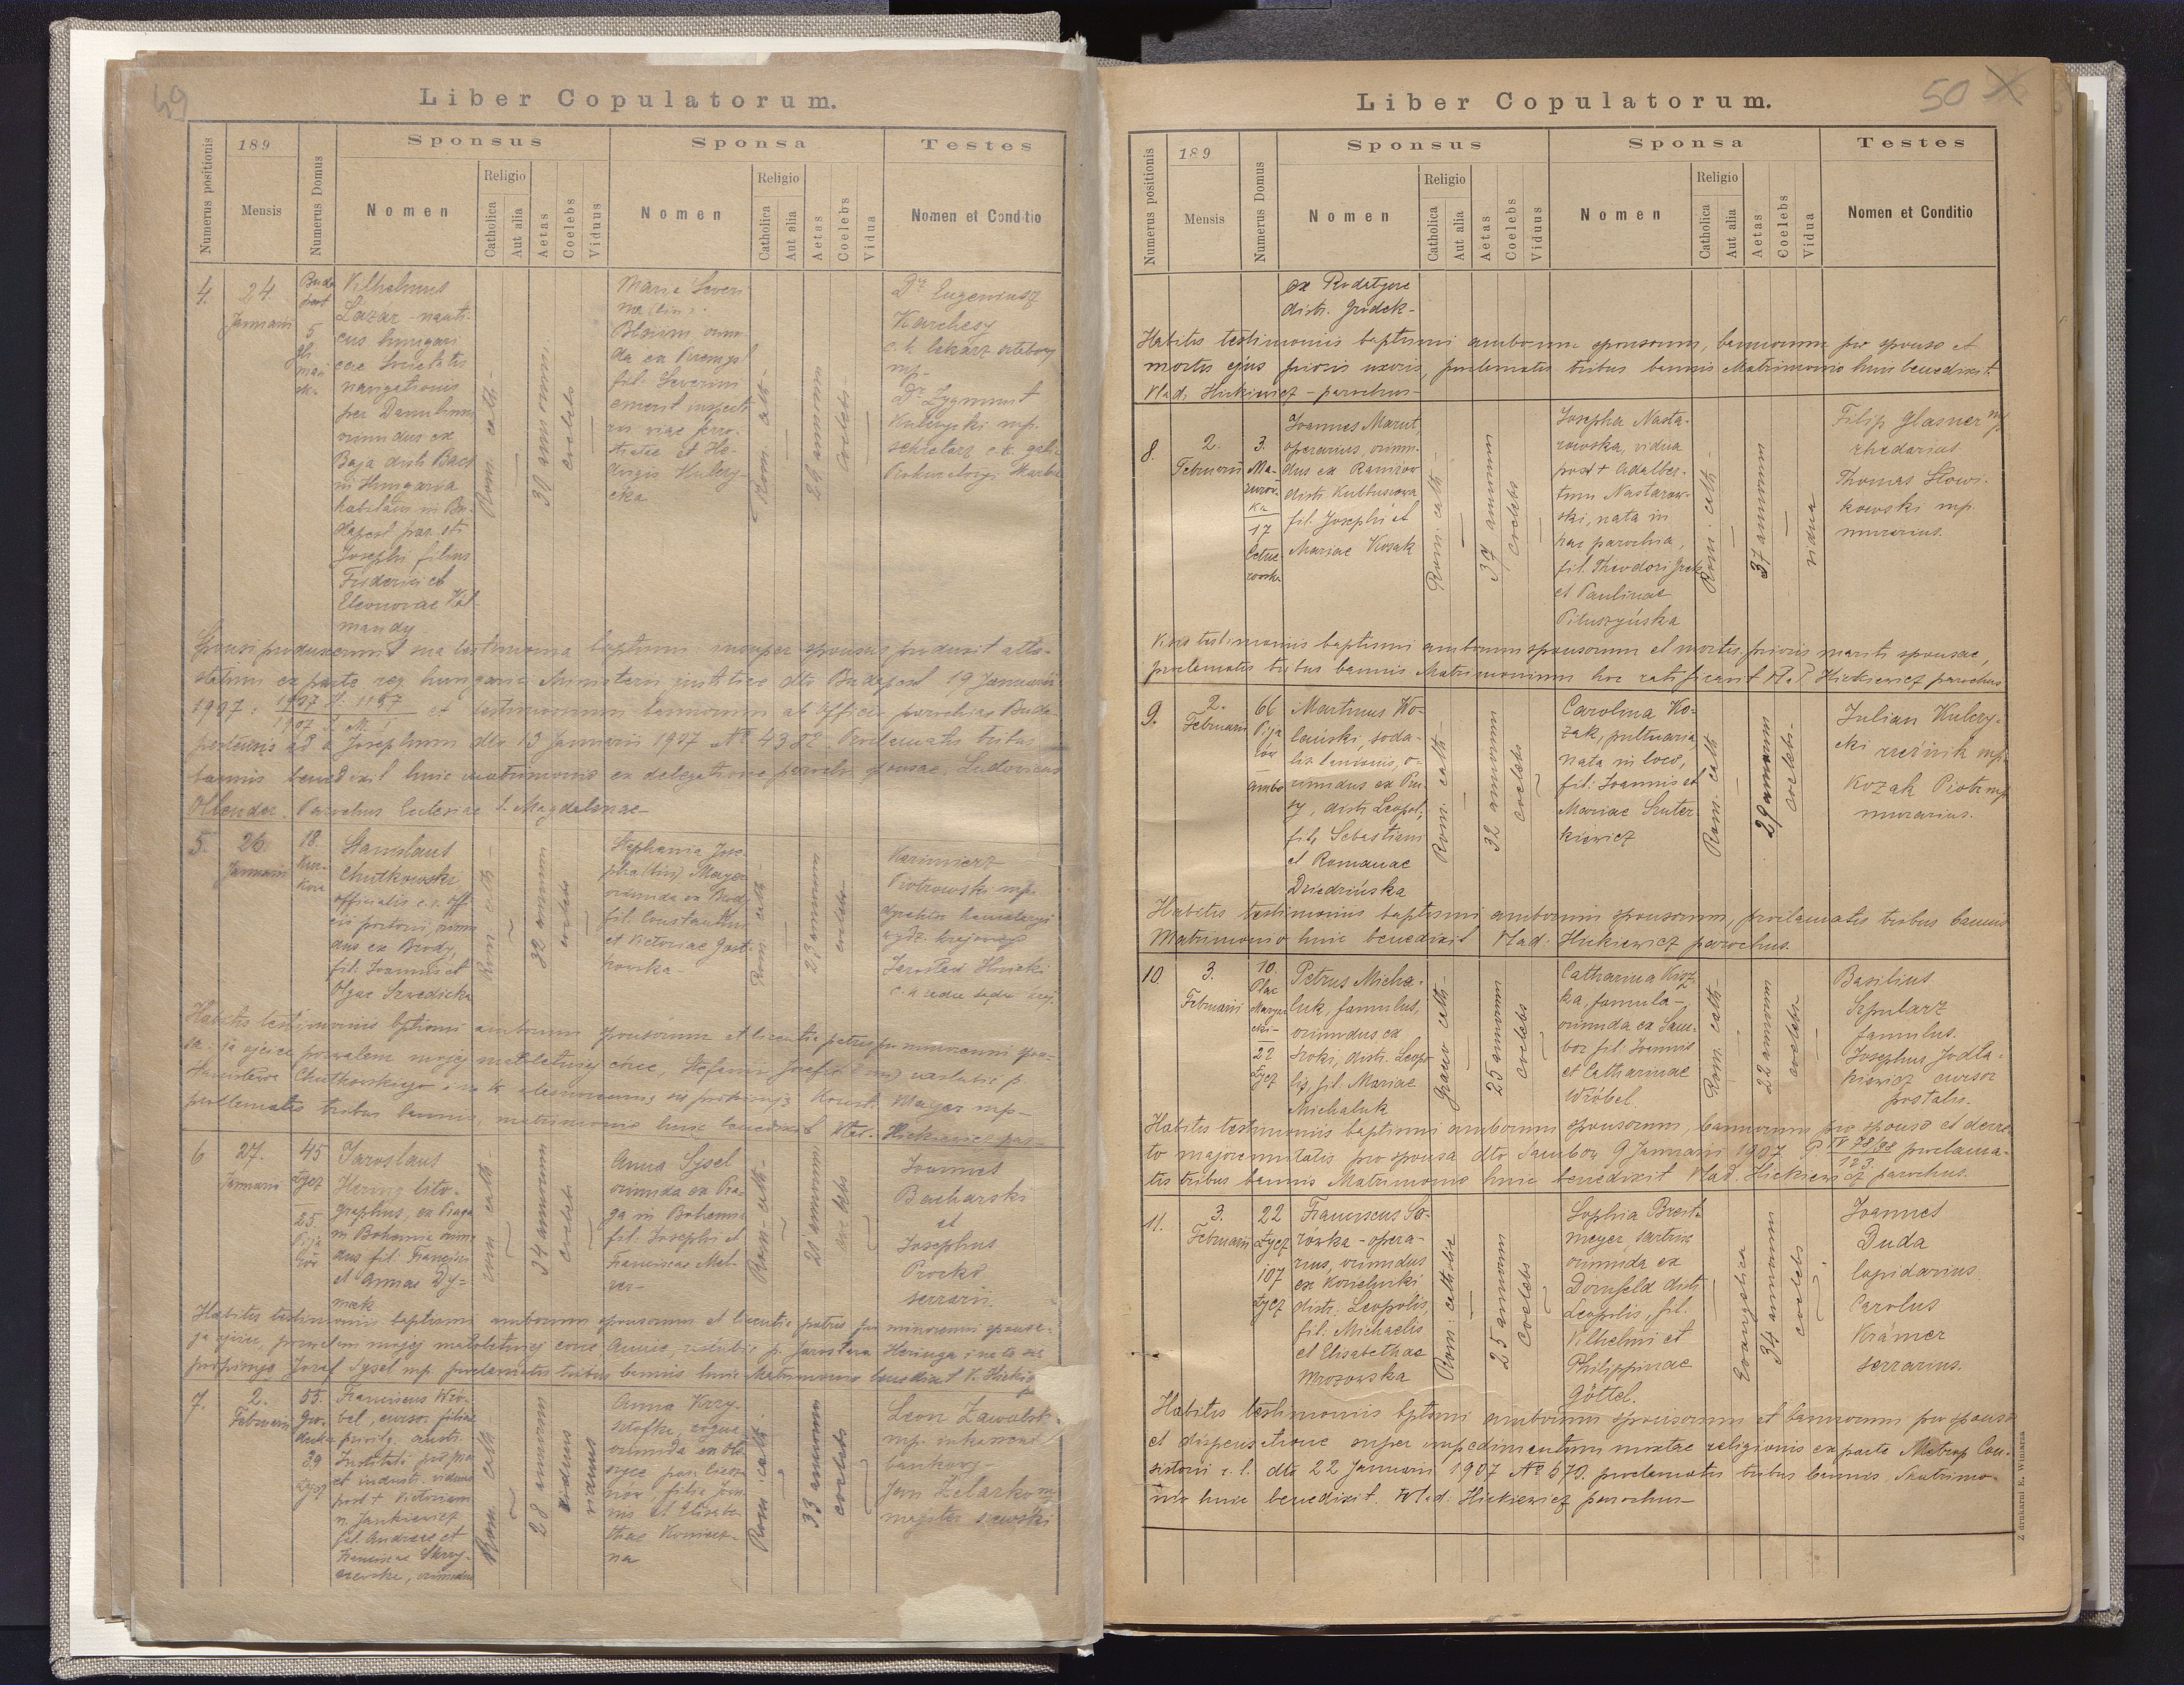 49
Liber Copulatorum.
Numerus positionis
189
Mensis
Numerus Domus
Sponsus
Nomen
Religio
Catholica
Aut alia
Aetas
Coelebs
Viduus
Sponsa
Nomen
Religio
Catholica
Aut alia
Aetas
Coelebs
Vidua
Testes
Nomen et Conditio
4.
24
Januarii
Buda
pest
5
Vilhelmus
Lazar - nauti-
cus hungari-
cae Societatis
navigationis
per Danubium,
oriundus ex
Baja distr. Bacs
in Hungaria
habitans in Bu-
dapest par. sti
Josephi filius
Friderici et
Eleonorae Kal-
mandy
Rom. cath -
30 annorum
coelebs
Maria Severi
na (bin)
oriun-
da ex Przemyśl
fil. Severini
emerit inspecto
ris viae ferro-
tratae et He-
dvigis Kulczy-
cka
Rom. cath -
coelebs
Dr Eugeniusz
Karchesy
c. k. lekarz
mp-
Dr Zygmunt
Kulczycki mp.
sekretarz c. k. galic.
Prokuratoryi Skarbu
Sponsi produxerunt sua testimonia baptismi insuper sponsus produxit atte-
statum ex parte reg hungarici Ministerii justitiae dto Budapest 19 Januarii
1907: et testimonium bannorum ab officio parochiae Buda-
pestensis ad S. Josephum dto 13 Januarii 1907 No 4382 Proclamatis tribus
bannis benedixit huic matrimonio ex delegatione parochi sponsae, Ludovicus
Ollender Parochus Ecclesiae S. Magdalenae-
5.
26
Januarii
18.
Kur-
kowa
Stanislaus
Chutkowski
officialis c. r. offi
cii portorii, oriun
dus ex Brody,
fil. Joannis et
Olgae Szwedicka
Rom. cath -
32 annorum
coelebs
Stephania Jose-
pha (bin) Mayer
oriunda ex Brody
fil. Constantini
et Victoriae Gost-
kowska -
Rom. cath -
23 annorum
coelebs
Kazimierz
Piotrowski mp.
dyrektor kancelaryi
wydz. krajowego
Jarosław
Habitis testimoniis bptismi amborum sponsorum et licentia patris pro minorenni spon-
sa: ja ojciec pozwalam mojej małoletniej córce, Stefanii Jozefie (2 im) zaślubić p
Stanisława Chutkowskiego i na to własnoręcznie się podpisuję Konst. Mayer mp-
proclamatis tribus bannis, matrimonio huic benedixit Vlad. Hickiewicz par-
6
27.
Januarii
45
Łycz
25.
Pija
rów
Jaroslaus
Hering lito-
graphus, ex Praga
in Bohemia oriun
dus fil. Francisci
et Annae Dy-
mek
rom cath -
34 annorum
coelebs
Anna Sysel
oriunda ex Pra-
ga in Bohemia
fil. Josephi et
Franciscae Mel-
zer-
Rom. cath -
coelebs
Joannes
Bacharski
et
Josephus
Procko
serrarii.
Habitis testimoniis baptismi amborum sponsorum et licentia patris pro minorenni sponsa:
ja ojciec, pozwalam mojej małoletniej córce Annie, zaślubić p. Jarosława Heringa i na to się
podpisuję Józef Sysel mp. proclamatis tribus bannis huic Matrimonio benedixit V. Hickie
7.
2.
Februarii
55.
Gro-
decka
39
Franciscus Wró-
bel, cursor filiae
privileg. austr.
Instituti pro
et industr. viduus
post + Victoriam
n. Jankiewicz
fil. Andreae et
Franciscae
oriundus
Rom. cath -
28 annorum
viduus
viduus
Anna Krzy-
sztofka, coqua
oriunda ex
filia Joan
nis et Elisabe
thae
Rom. cath -
33 annorum
coelebs
Leon Zawalsk
mp. inkasent
bankowy -
Jan Zelarko mp
majster szewski
50
Liber Copulatorum.
Numerus positionis
189
Mensis
Numerus Domus
Sponsus
Nomen
Religio
Catholica
Aut alia
Aetas
Coelebs
Viduus
Sponsa
Nomen
Religio
Catholica
Aut alia
Aetas
Coelebs
Vidua
Testes
Nomen et Conditio
ex Rodatycze
distr. Gródek-
Habitis testimoniis baptismi amborum sponsorum, bannorum pro sponso et
mortis ejus prioris uxoris, proclamatis tribus bannis Matrimonio huic benedixit
Vlad. Hickiewicz - parochus-
8.
2.
Februarii
3.
Ma-
zurów-
ka
17
Joannes Marut,
operarius, oriun-
dus ex Raniżów
distr. Kolbuszowa
fil. Josephi et
Mariae Kosak
Rom. cath -
37 annorum
coelebs
Josepha Nasta-
rowska, vidua
post + Adalber-
tum Nastarow-
ski, nata in
hac parochia,
fil. Theodori Gre
et Paulinae
Piluszyńska
Rom. cath -
37 annorum
vidua
Filip Glasner mp
rhedarius
Thomas Słowi-
kowski mp.
murarius.
Visis testimoniis baptismi amborum sponsorum et mortis prioris mariti sponsae,
proclamatis tribus bannis Matrimonium hoc ratificavit Vlad Hickiewicz parochus
9.
2.
Februarii
66
Pija
rów
ambo
Martinus Wo-
lański, soda-
lis lanionis, o-
riundus ex Ru-
sy, distr. Leopol,
fil. Sebastiani
et Romanae
Dziedzińska
Rom. cath -
32 annorum
coelebs
Carolina Ko-
zak, pultuaria,
nata in loco,
fil. Joannis et
Mariae Sluter-
kiewicz
Rom. cath
29 annorum
coelebs -
Julian Kulczy-
cki rzeźnik mp.
Kozak Piotr mp
murarius.
Habitis testimoniis baptismi amborum sponsorum, proclamatis tribus bannis
Matrimonio huic benedixit Vlad: Hickiewicz parochus.
10
3.
Februarii
10.
Plac
Maryac
cki-
22
Łycz
Petrus Micha-
luk, famulus,
oriundus ex
Sroki, distr. Leopo
lis, fil. Mariae
Michaluk
Graeco cath -
25 annorum
coelebs
Catharina Kisz-
ka, famula -
oriunda ex Sam-
bor fil. Joannis
et Catharinae
Wróbel.
Rom. cath -
22 annorum
coelebs
Basilius
Szpularz
famulus.
Josephus Jodła-
kiewicz cursor
postalis.
Habitis testimoniis baptismi amborum sponsorum, bannorum pro sponso et decre-
to majorennitatis pro sponsa dto Sambor 9 Januarii 1907 P. IV 78/98 proclama-
123
tis tribus bannis Matrimonio huic benedixit Vlad. Hickiewicz parochus.
11.
3.
Februarii
22
Łycz
107
Łycz
Franciscus So-
rowka - opera-
rius, oriundus
ex Kozielniki
distr. Leopolis,
fil: Michaelis
et Elisabethae
Mrozowska
Rom: catholic
25 annorum
coelebs
Sophia Breit-
meyer, sartrix
oriunda ex
Dornfeld distr.
Leopolis, fil.
Vilhelmi et
Philippinae
Göttel.
Evangelica
34 annorum
coelebs
Joannes
Duda
lapidarius
Carolus
Krämer
serrarius.
Habitis testimoniis bptismi amborum sponsorum et bannorum pro sponso
et dispensatione super impedimentum mixtae religionis ex parte Metrop Con-
sistorii r. l. dto 22 Januarii 1907 No 570. proclamatis tribus bannis, Matrimo-
nio huic benedixit. Vlad: Hickiewicz parochus-
Z drukarni E. Winiarza